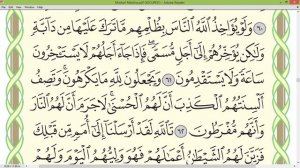 ٦٠ وَلَوْ يُؤَاخِذُ اللَّهُ النَّاسَ بِظُلْمِهِم مَّا تَرَكَ عَلَيْهَا مِن دَابَّةٍ
وَلَٰكِن يُؤَخِّرُهُمْ إِلَىٰ أَجَلٍ مُّسَمًّى فَإِذَا جَاءَ أَجَلُهُمْ لَا يَسْتَأْخِرُونَ
سَاعَةً وَلَا يَسْتَقْدِمُونَ ٦١ وَيَجْعَلُونَ لِلَّهِ مَا يَكْرَهُونَ وَتَصِفُ
أَلْسِنَتُهُمُ الْكَذِبَ أَنَّ لَهُمُ الْحُسْنَىٰ لَا جَرَمَ أَنَّ لَهُمُ النَّارَ
وَأَنَّهُم مُّفْرَطُونَ ٦٢ تَاللَّهِ لَقَدْ أَرْسَلْنَا إِلَىٰ أُمَمٍ مِّن قَبْلِكَ
فَزَيَّنَ لَهُمُ الشَّيْطَانُ أَعْمَالَهُمْ فَهُوَ وَلِيُّهُمُ الْيَوْمَ وَلَهُمْ